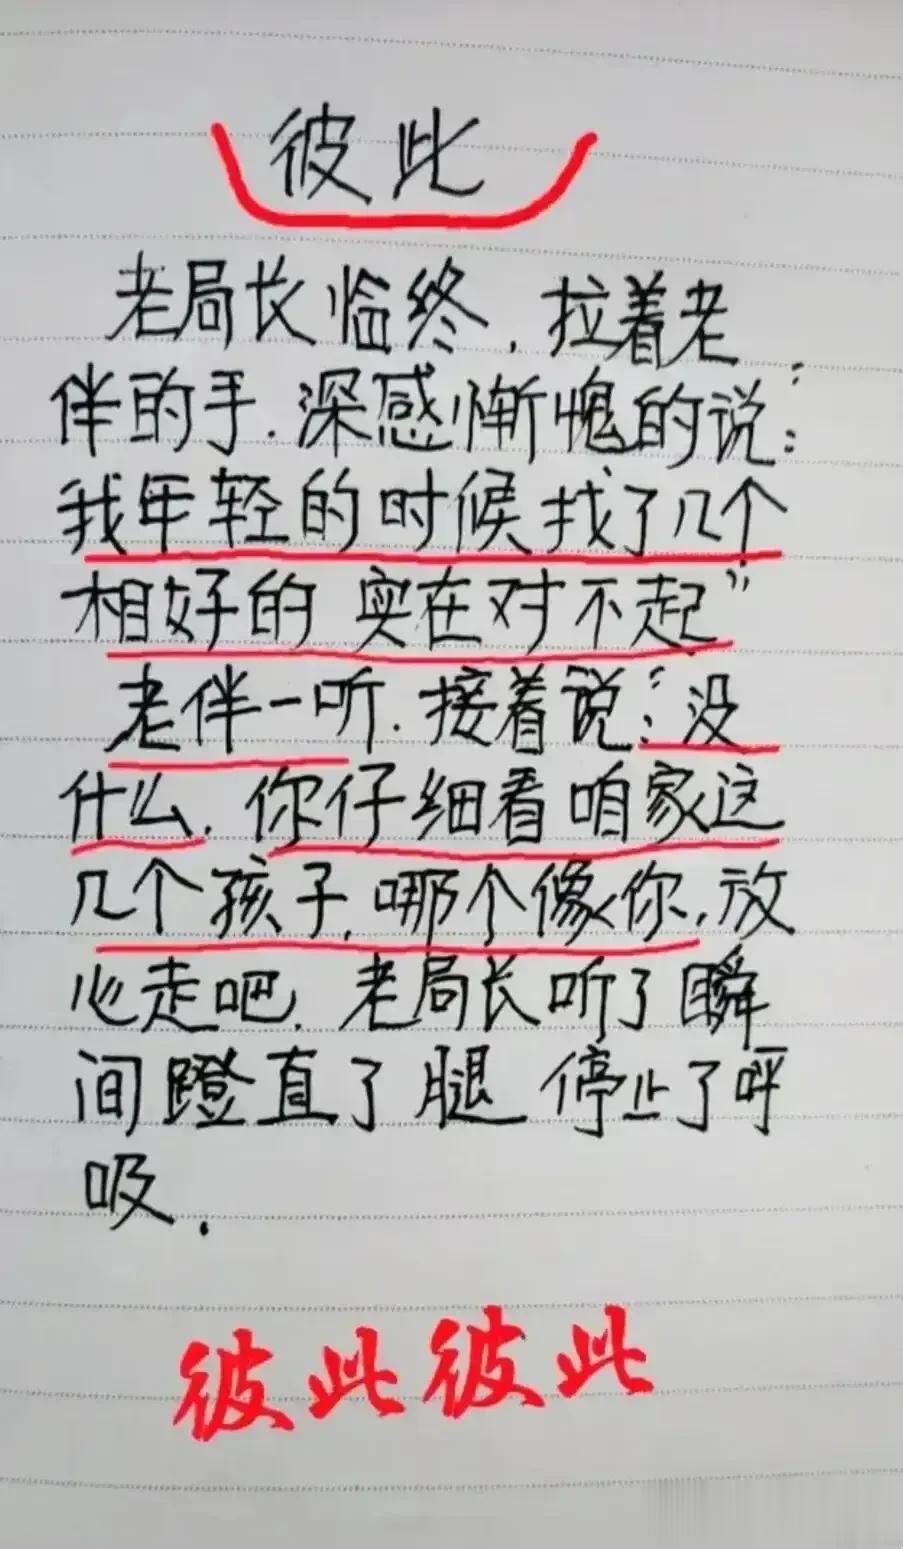 彼此
老局长临终，拉着老
伴的手.深感惭愧的说：“
我年轻的时候找了几个
相好的 实在对不起”
老伴一听.接着说：“没
什么.你仔细看咱家这
几个孩子,哪个像你,放
心走吧.老局长听了瞬
间蹬直了腿 停止了呼
吸.
彼此彼此